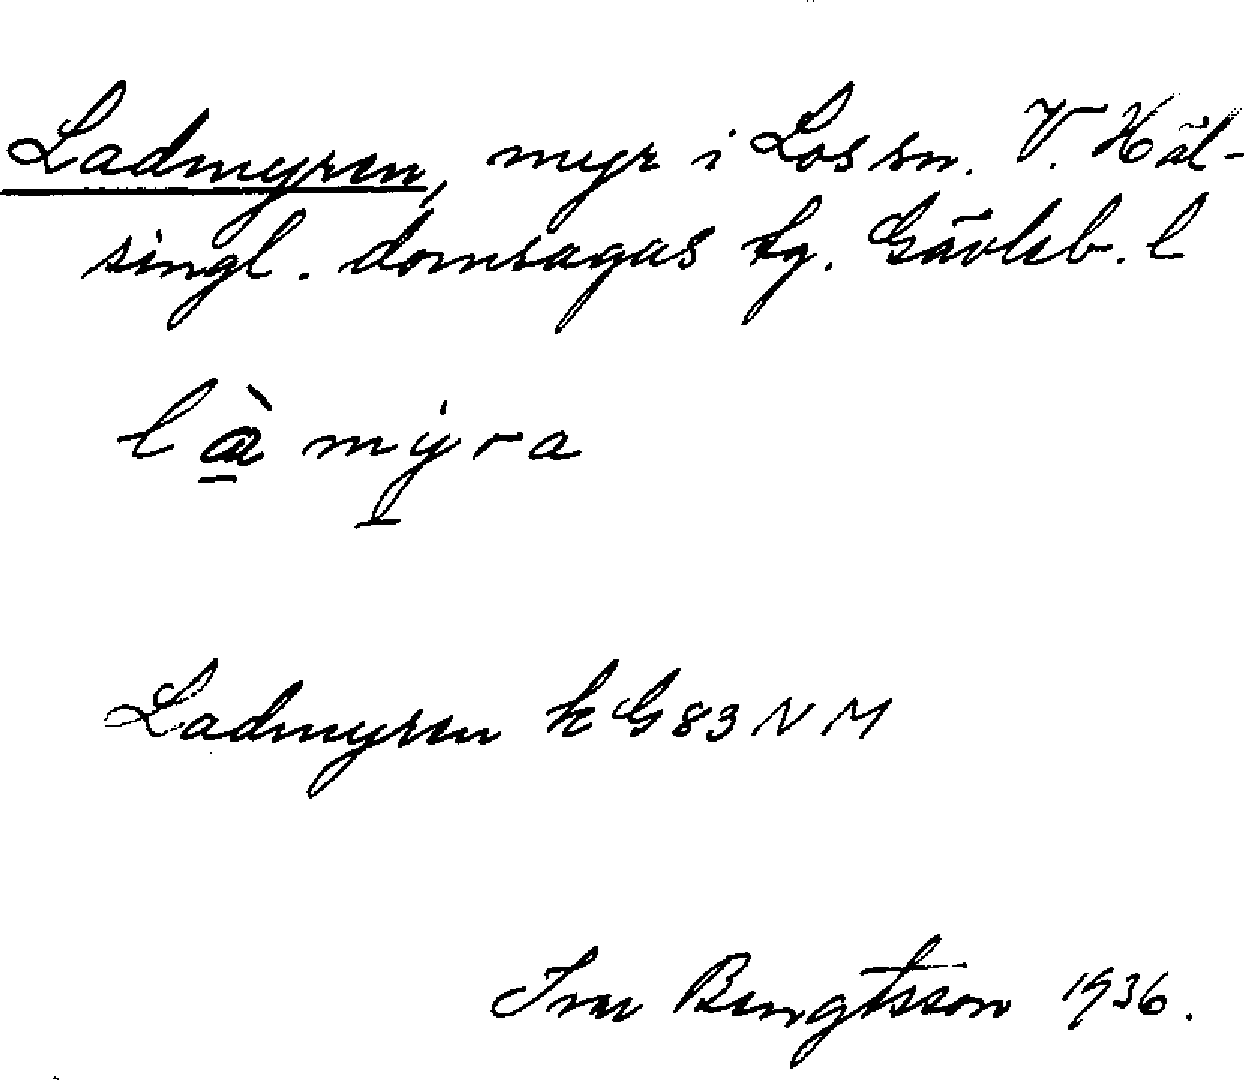 Ladmyren, myr i Los sn. V. Häl-
singl. domsagas tg. Gävleb. l
làmyra
Ladmyren k G 83 N M
Ivar Bengtsson 1936.